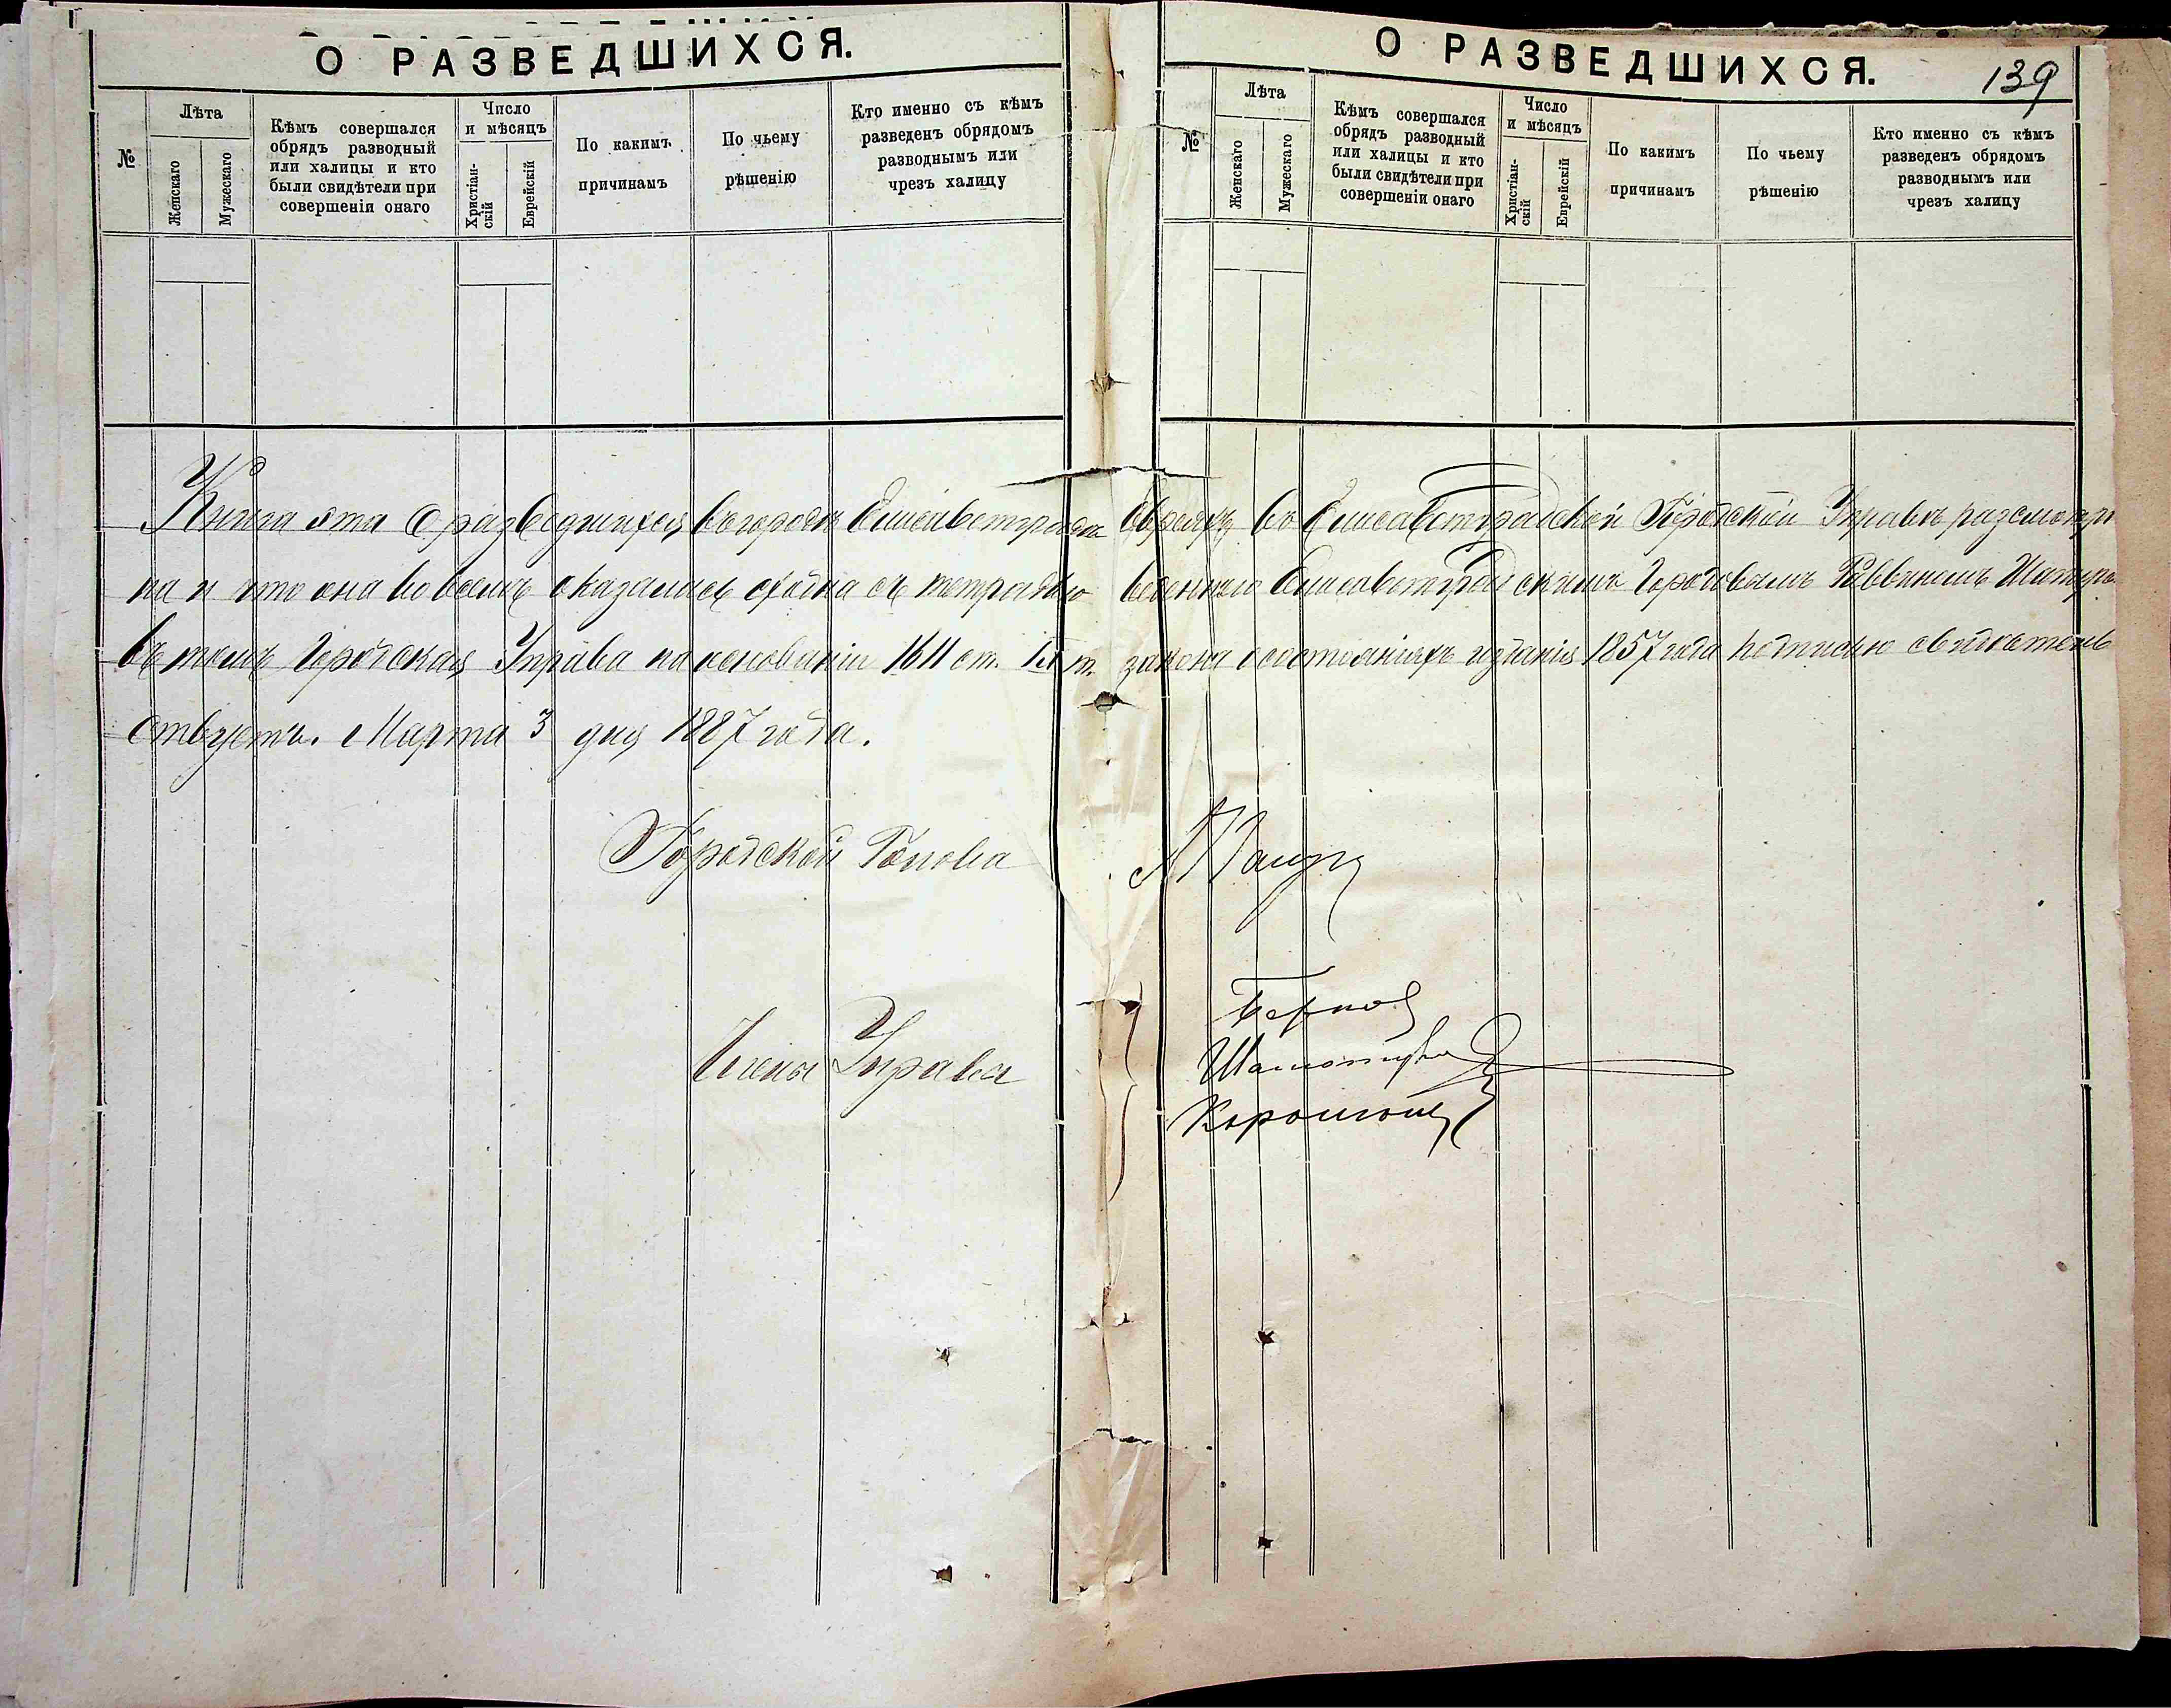 О РАЗВЕДШИХСЯ.
№
Лѣта
Женскаго
Мужескаго
Кѣмъ совершался
обрядъ разводный
или халицы и кто
были свидѣтели при
совершеніи онаго
Число
и мѣсяцъ
Христіан-
скій
Еврейскій
По какимъ
причинамъ
По чьему
рѣшенію
Кто именно съ кѣмъ
разведенъ обрядомъ
разводнымъ или
чрезъ халицу
О РАЗВЕДШИХСЯ.
139
№
Лѣта
Женскаго
Мужескаго
Кѣмъ совершался
обрядъ разводный
или халицы и кто
были свидѣтели при
совершеніи онаго
Число
и мѣсяцъ
Христіан-
скій
Еврейскій
По какимъ
причинамъ
По чьему
рѣшенію
Кто именно съ кѣмъ
разведенъ обрядомъ
разводнымъ или
чрезъ халицу
Книга эта О разведшихся въ городѣ Елисаветградѣ Евреяхъ въ Елисаветградской Городской Управѣ разсмотре
на и что она во всемъ оказалась сходна съ тетрадью веденною Елисаветградскимъ Городовымъ Раввиномъ
въ томъ Городская Управа на основаніи 1611 ст. IX т. закона о состояніяхъ изданія 1857 года подписью свидѣтель
ствуетъ. Марта 3 дня 1887 года.
Городской Голова
Члены Управы